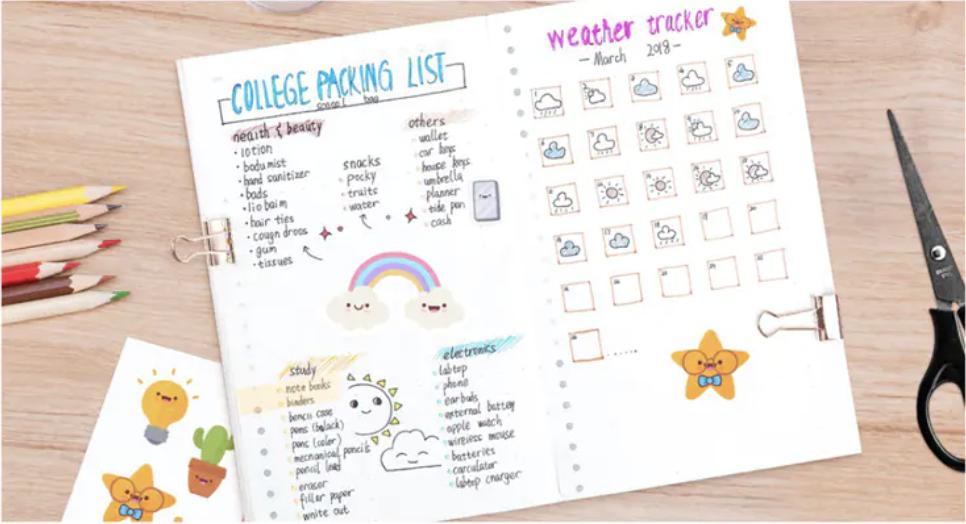 COLLEGE PACKING LIST
health & beauty
• lotion
• body mist
• hand sanitizer
• pads
• lip balm
• hair ties
• cough drops
• gum
• tissues
snacks
pocky
fruits
water
others
wallet
car keys
house keys
umbrella
planner
tide pen
cash
study
note books
binders
pencil case
pens (black)
pens (color)
mechanical pencils
pencil lead
eraser
filler paper
white out
electronics
labtop
phone
earbuds
external battery
apple watch
wireless mouse
batteries
carculator
labtop charger
weather tracker
- March 2018 -